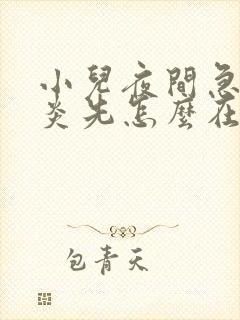 小兒夜間急
炎先怎麼在
包青天